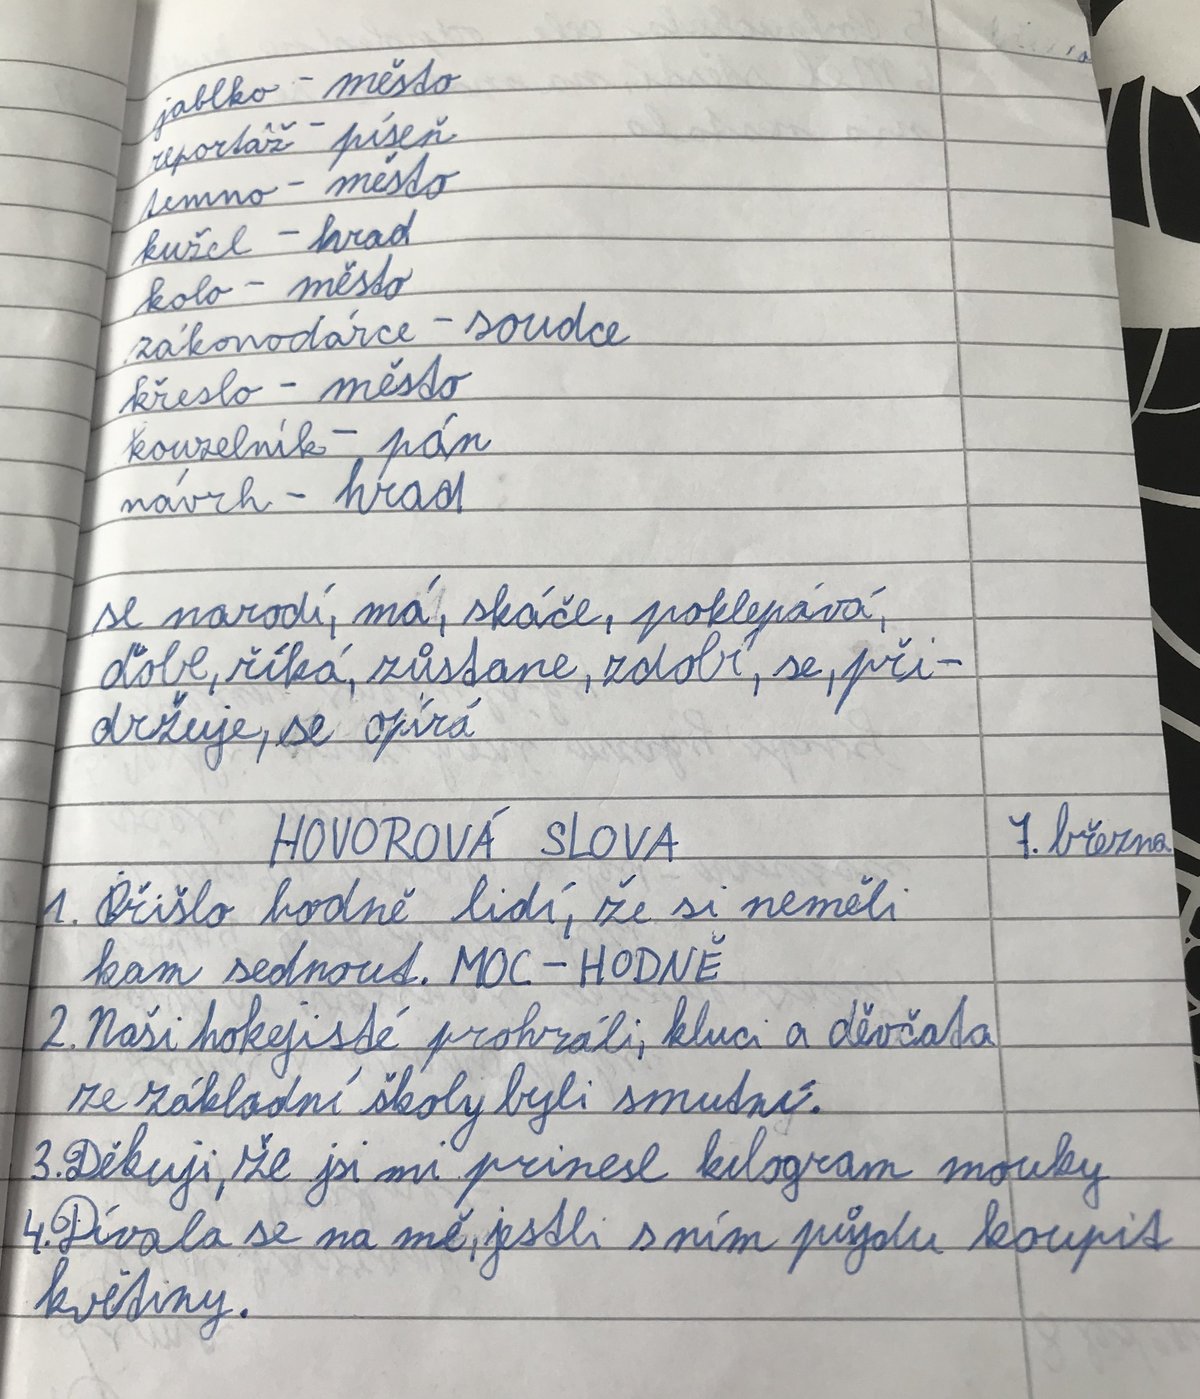 jablko - město
reportáž - píseň
temno - město
kužel - hrad
kolo - město
zákonodárce - soudce
křeslo - město
kouzelník - pán
návrh - hrad
se narodí, má, skáče, poklepává,
ďobe, říká, zůstane, zdobí, se, při-
držuje, se opírá
HOVOROVÁ SLOVA 7. března
1. Přišlo hodně lidí, že si neměli
kam sednout. MOC - HODNĚ
2. Naši hokejisté prohráli, kluci a děvčata
ze základní školy byli smutní.
3. Děkuji, že jsi mi prinesl kilogram mouky
4. Dívala se na mě, jestli s ním půjdu koupit
květiny.